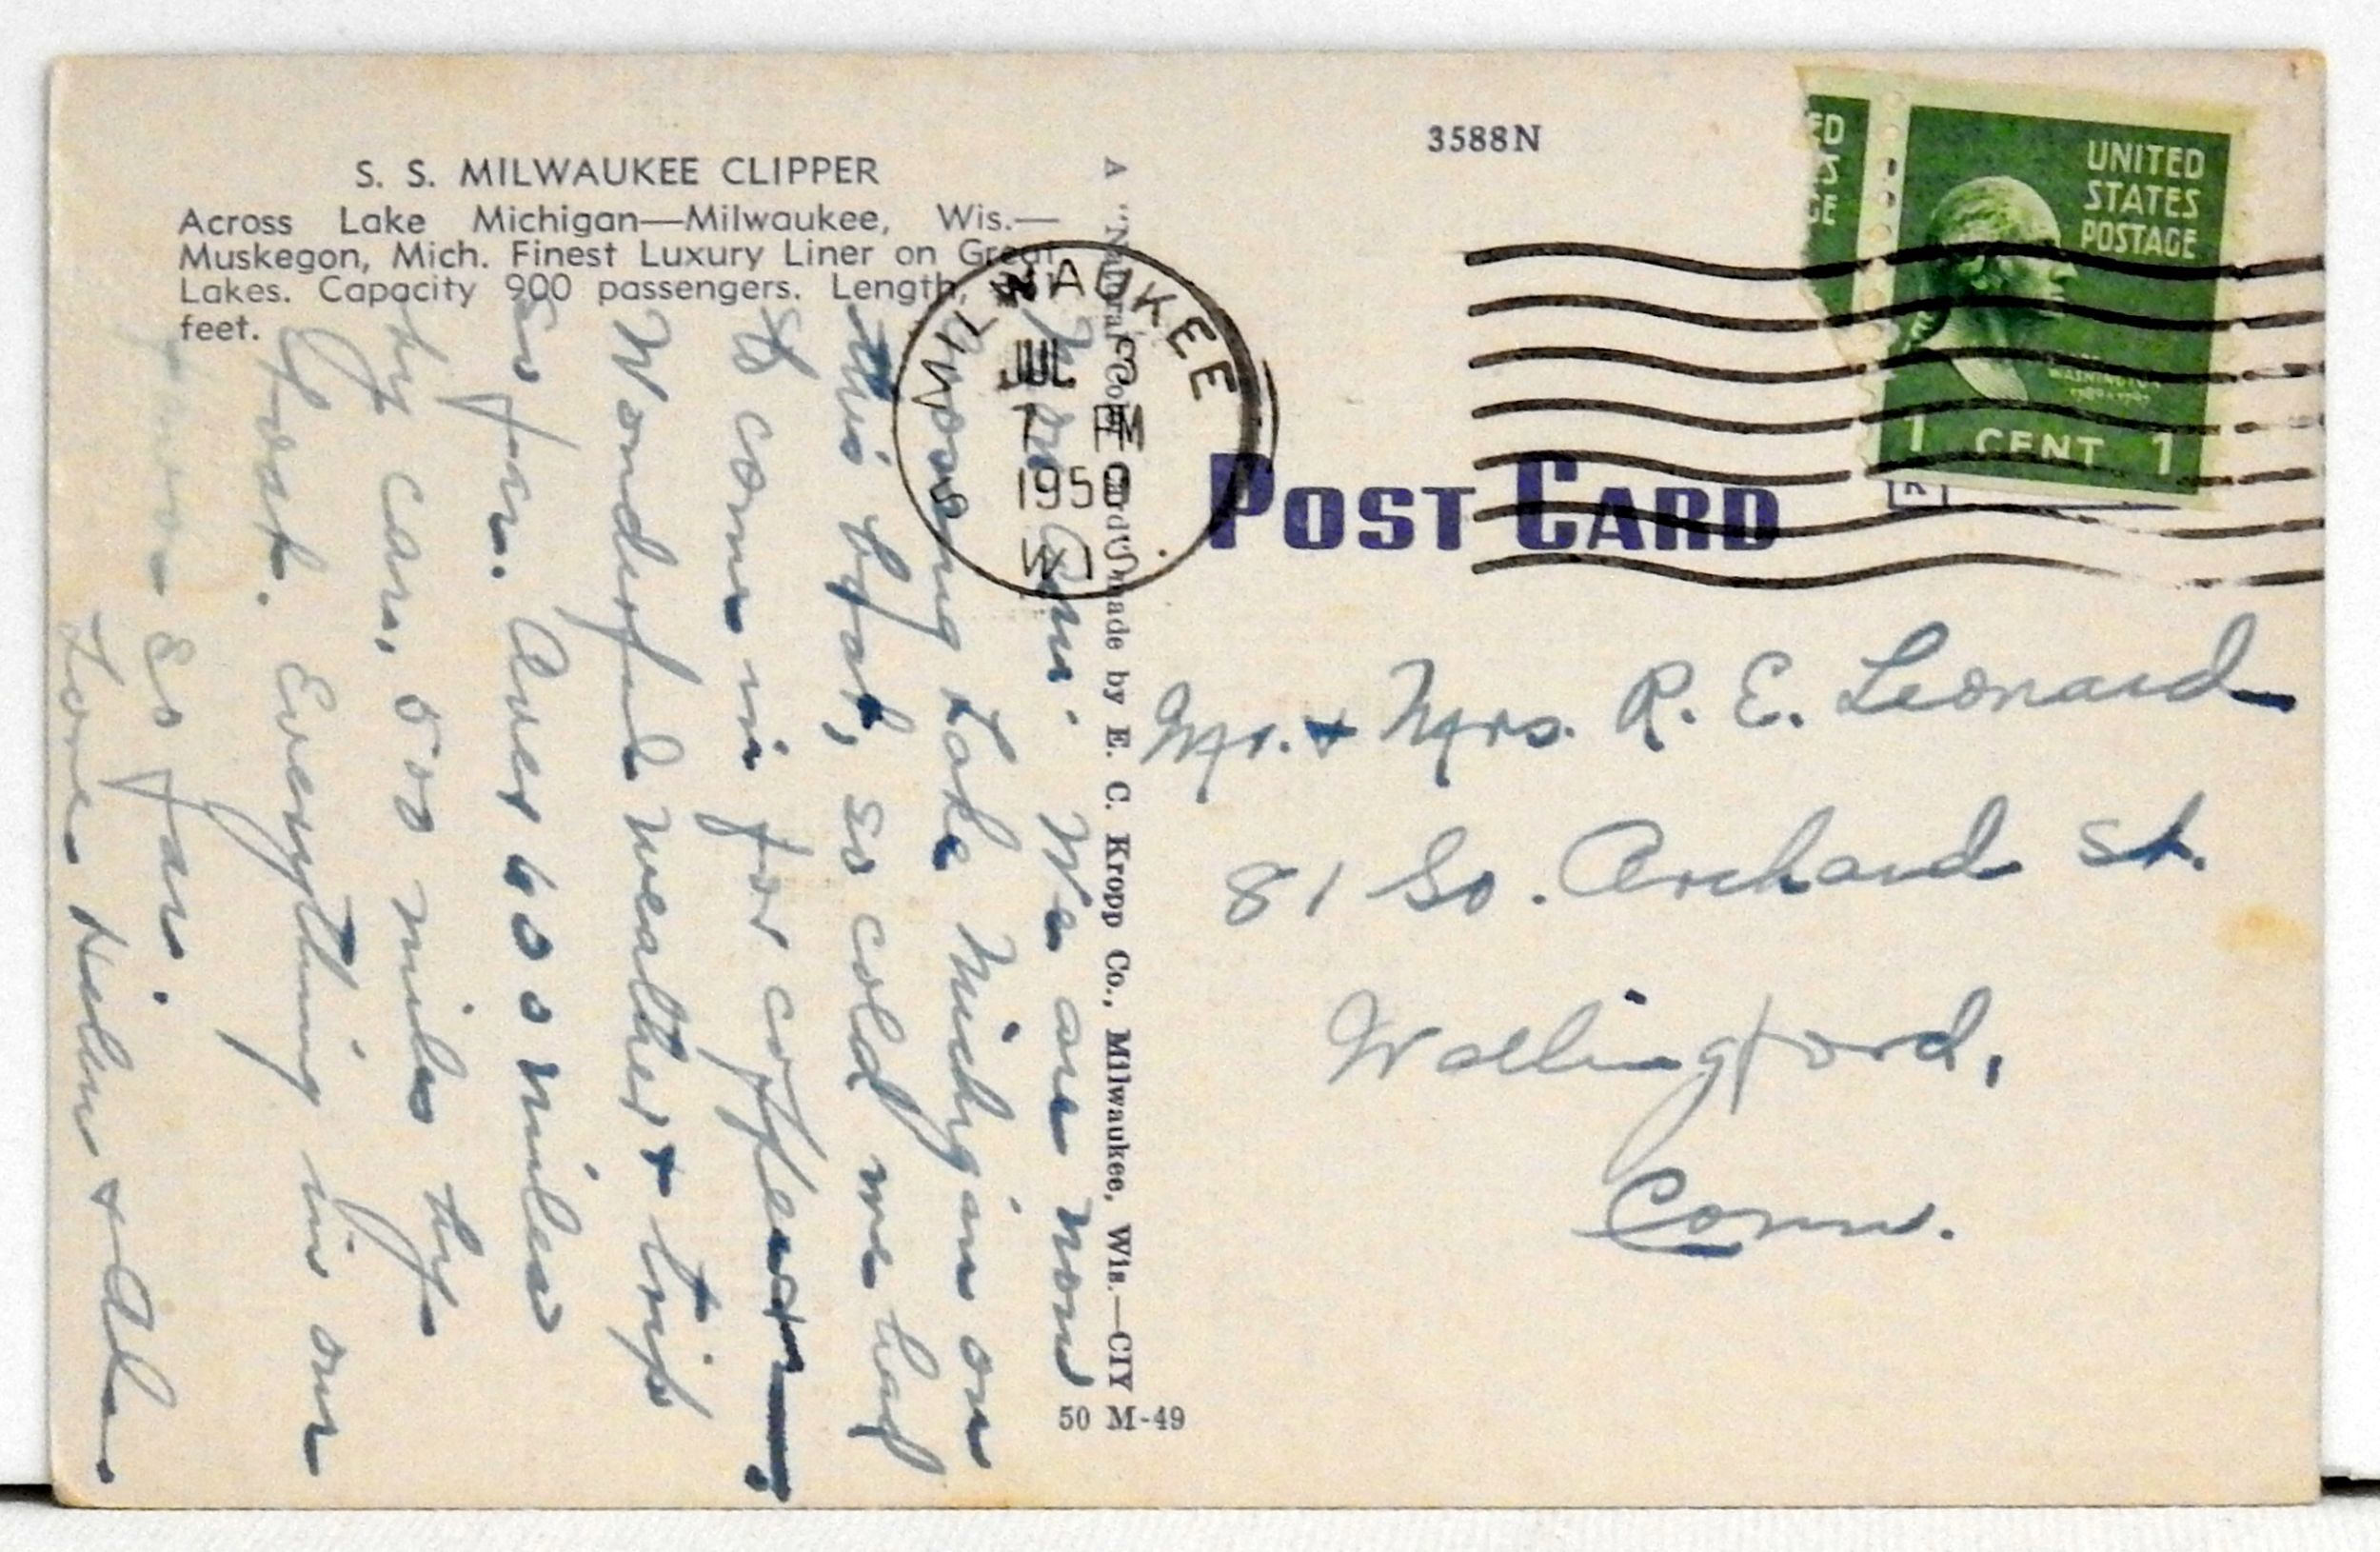 S. S. MILWAUKEE CLIPPER
Across Lake Michigan—Milwaukee, Wis.—
Muskegon, Mich. Finest Luxury Liner on Great
Lakes. Capacity 900 passengers. Length,
feet.
We are now
crossing Lake Michigan on
this boat, so cold we had
to come in for coffee
Wonderful weather & trip
so far. Over 600 miles
by car, 500 miles by
boat. Everything in our
favor so far.
Love Helen &
A "Natural Color Card" made by E. C. Kropp Co., Milwaukee, Wis.—CIY
50 M-49
3588N
MILWAUKEE
JUL 3
7 PM
1950
WI
POST CARD
ED
GE
UNITED
STATES
POSTAGE
WASHINGTON
1 CENT 1
Mr. & Mrs. R. E. Leonard
81 So. Orchard St.
Wallingford,
Conn.